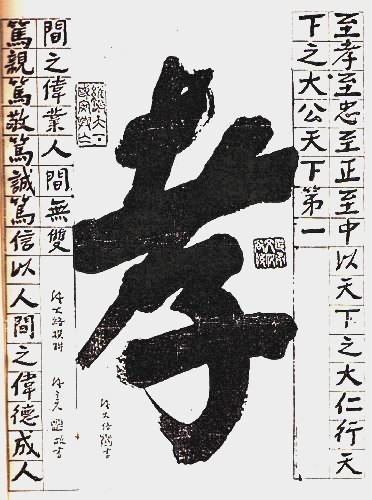 至孝至忠至正至中以天下之大仁行天
下之大公天下第一
孝
篤親篤敬篤誠篤信以人間之偉德成人
間之偉業人間無雙